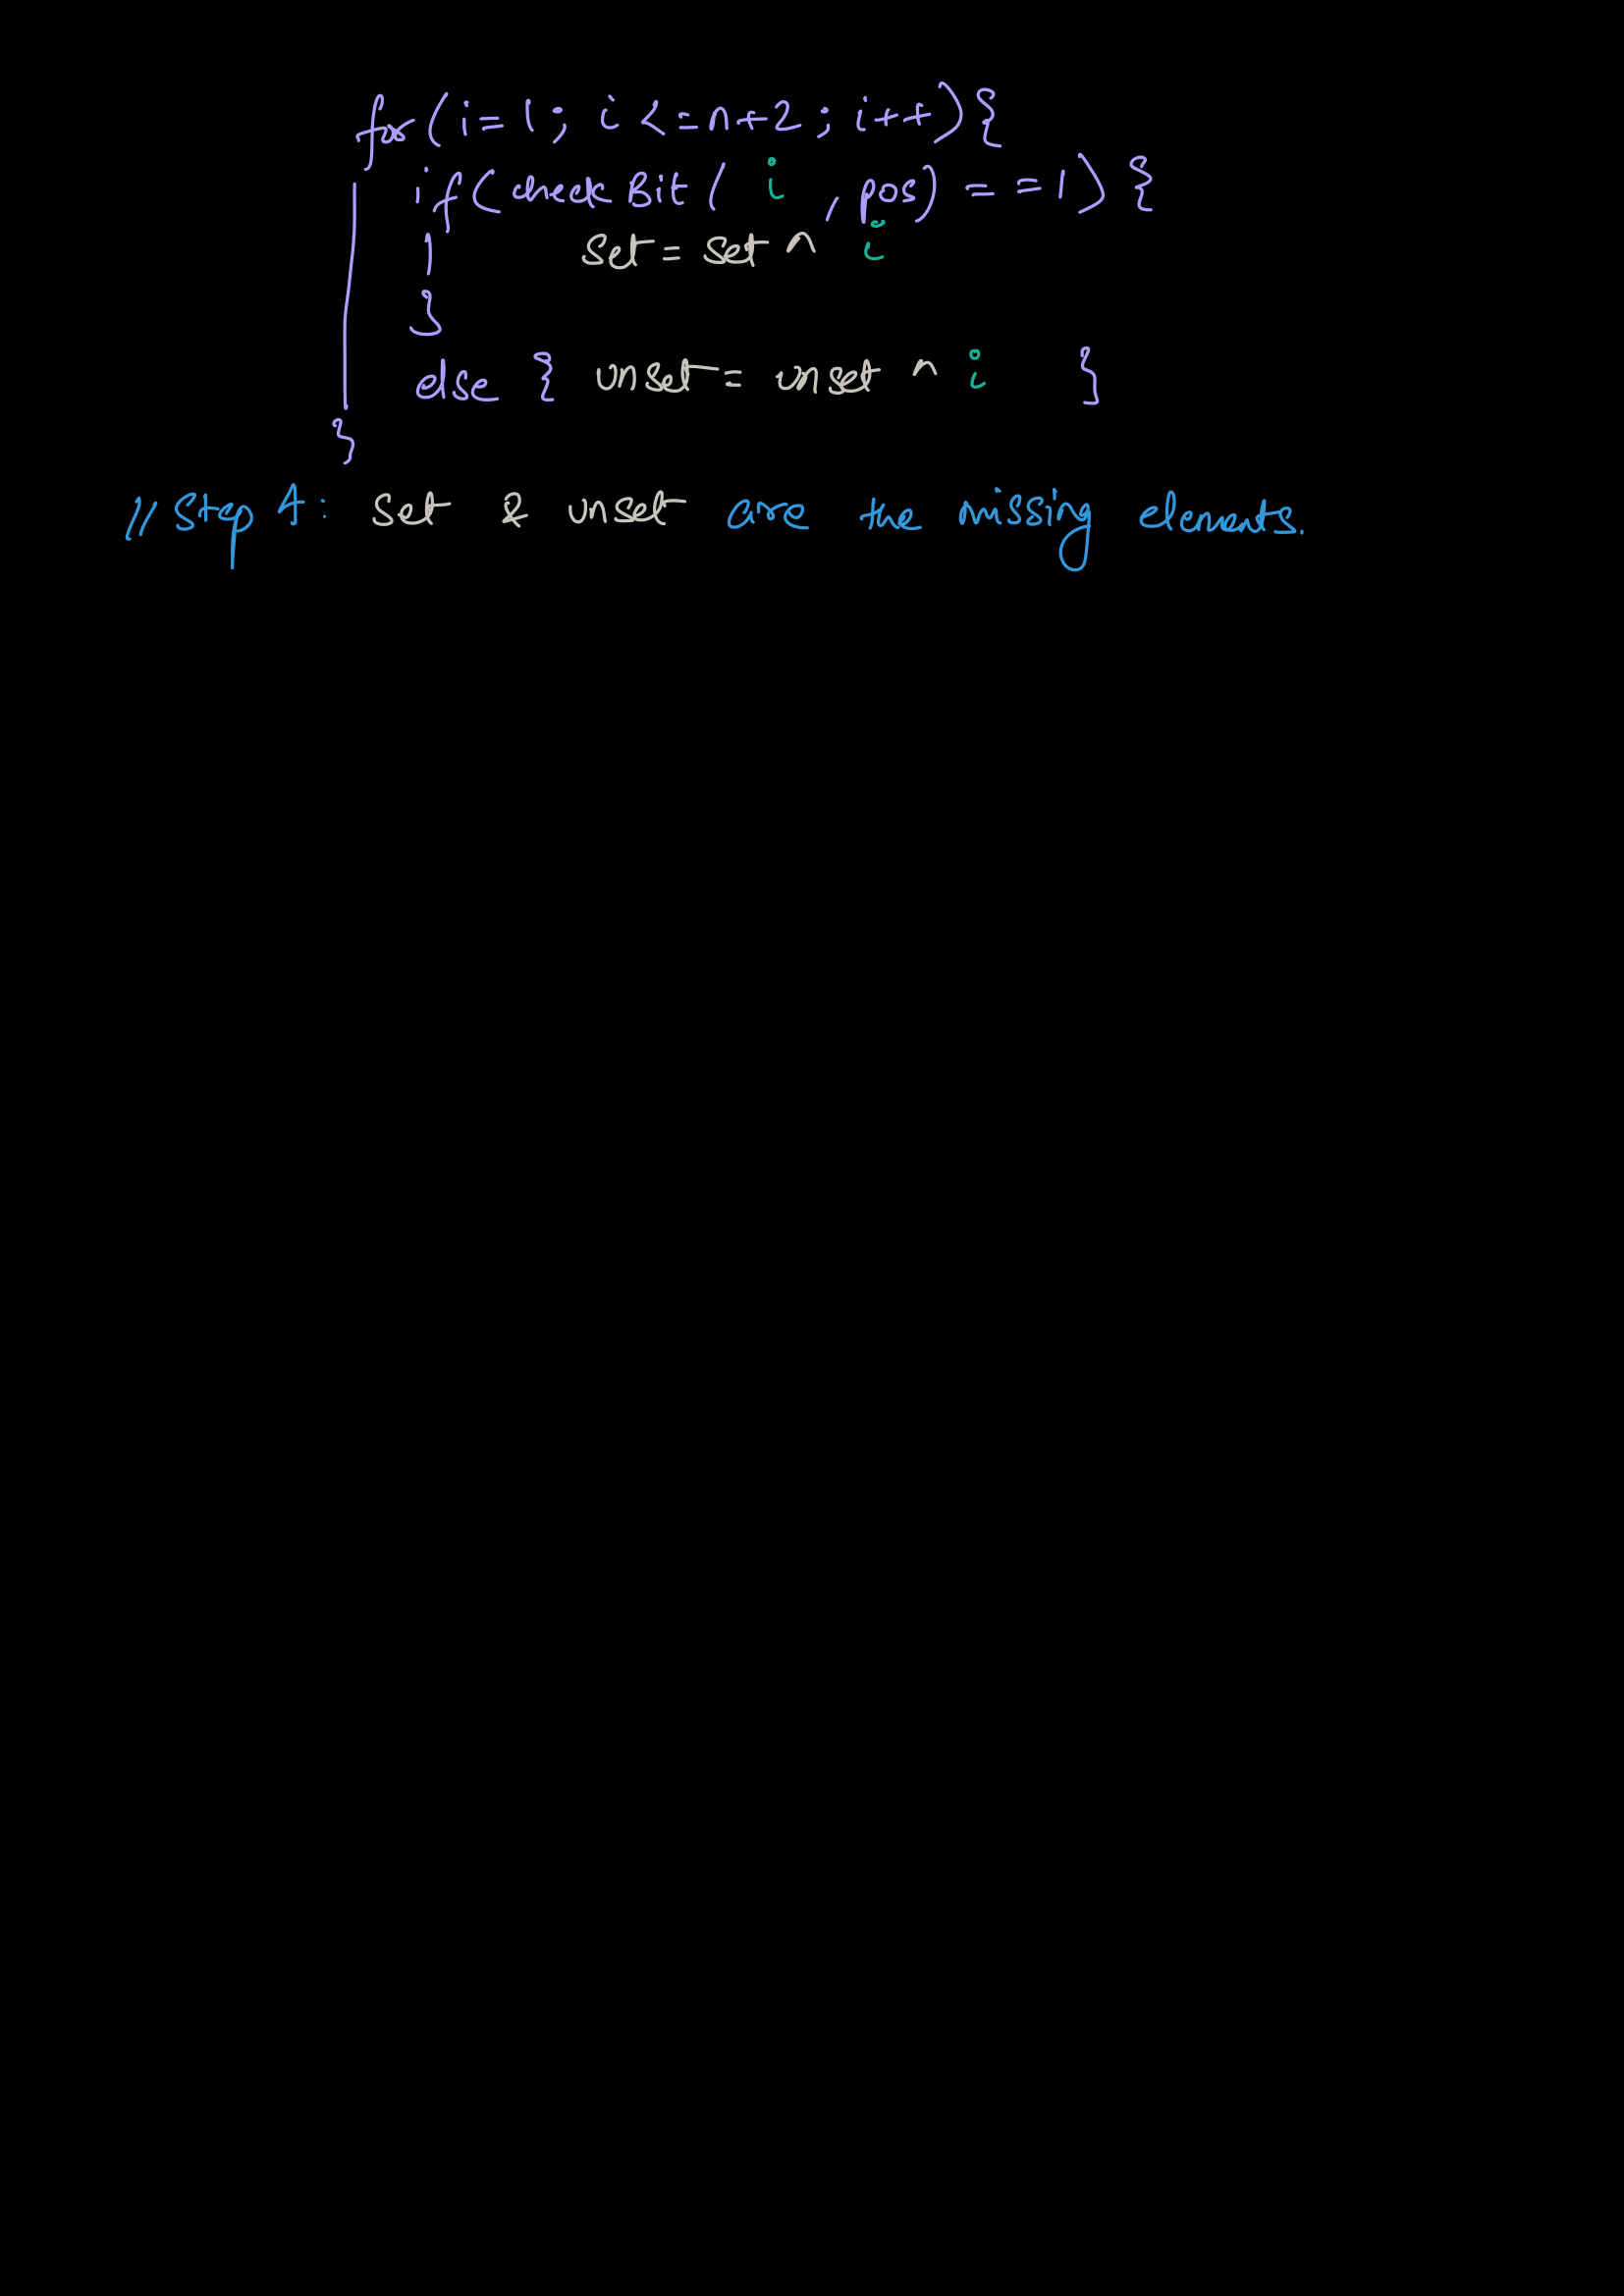 for(i=1; i<=n+2; i++){
if(checkBit(i, pos)==1){
set = set ^ i
}
else { unset = unset ^ i }
}
// Step 4: set & unset are the missing elements.